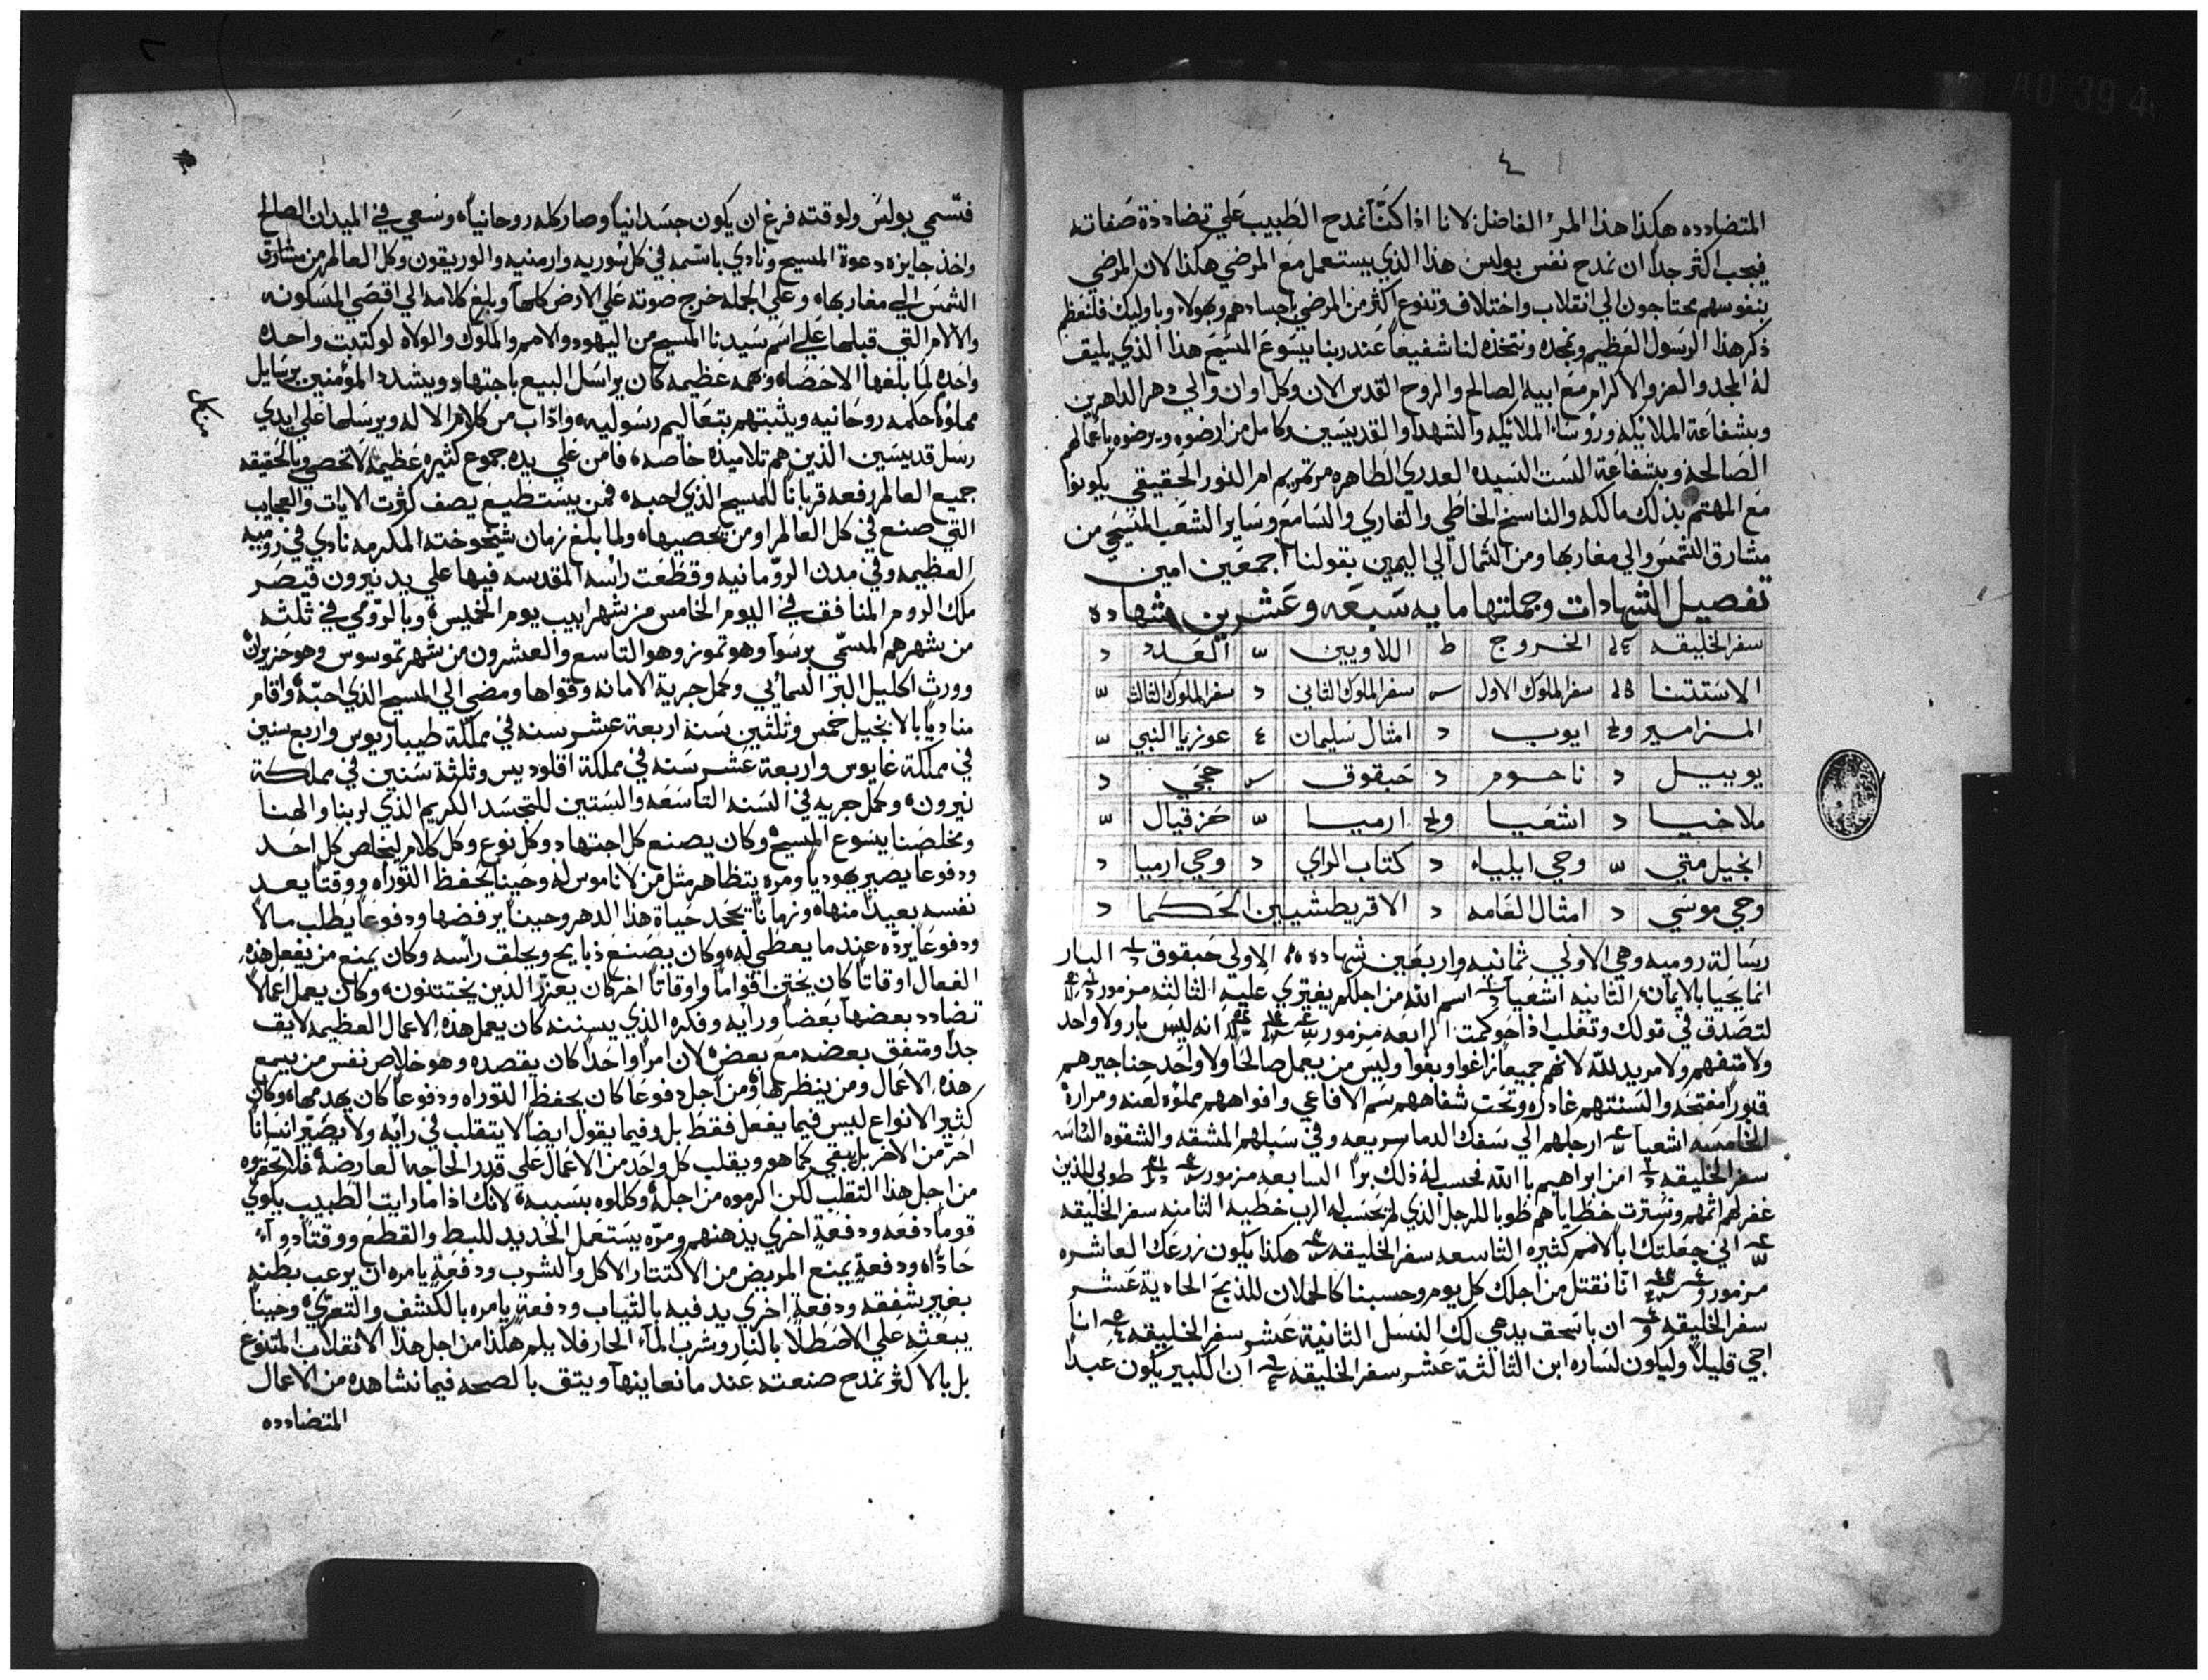 فتسمي بولس ولوقته فرغ ان يكون جسدانياً وصار كله روحانياً وسعي في الميدان الصالح
واخذ جايزه دعوة المسيح ونادي باسمه في كل سوريه وارمنيه والوريقون وكل العالم من مشارق
الشمس الي مغاربها وعلي الجمله خرج صوته علي الارض كلها وبلغ كلامه الي اقصي المسكونه
والالام التي قبلها علي اسم سيدنا المسيح من اليهود والامم والملوك والولاه لو كتبت واحده
واحده لما بلغها الاحصاء وبهمه عظيمه كان يراسل البيع باجتهاد ويشدد المؤمنين برسايل
مملؤه حكمه روحانيه ويثبتهم بتعاليم رسوليه واداب من كلام الاله ويرسلها علي ايدي
رسل قديسين الذين هم تلاميذه خاصه فامن علي يده جموع كثيره عظيمه لا تحصي وبالحقيقه
جميع العالم رفعه قرباناً للمسيح الذي احبه فمن يستطيع يصف كثرت الايات والعجايب
التي صنع في كل العالم او من يحصيها ولما بلغ زمان شيخوخته المكرمه نادي في روميه
العظيمه وفي مدن الرومانيه وقطعت راسه المقدسه فيها علي يد نيرون قيصر
ملك الروم المنافق في اليوم الخامس من شهر ابيب يوم الخميس وبالرومي في ثلثه
من شهرهم المسمي برسوا وهو تموز وهو التاسع والعشرون من شهر تموسوس وهو حزيران
وورث اكليل البر السمائي وكمل جرية الامانه وقواها ومضي الي المسيح الذي احبه واقام
منادياً بالانجيل خمس وثلثين سنه اربعة عشر سنه في مملكة طيباريوس واربع سنين
في مملكة غايوس واربعة عشر سنه في مملكة اقلوديس وثلثة سنين في مملكة
نيرون وكمل جريه في السنه التاسعه والستين للتجسد الكريم الذي لربنا والهنا
ومخلصنا يسوع المسيح وكان يصنع كل اجتهاد وكل نوع وكل كلام ليخلص كل احد
ودفوعاً يصير يهودياً ومره يتظاهر مثل من لا ناموس له وحيناً يحفظ التوراه ووقتاً يعد
نفسه بعيداً منها وزماناً يجحد حياة هذا الدهر وحيناً يرفضها ودفوعاً يطلب مالاً
ودفوعاً يرده عندما يعطي له وكان يصنع ذبايح ويحلق راسه وكان يمنع من يفعل هذه
الفعال اوقاتاً كان يختن اقواماً واوقاتاً اخر كان يعزر الذين يختتنون وكان يعمل اعمالاً
تضادد بعضها بعضاً ورايه وفكره الذي يسننه كان يعمل هذه الاعمال العظيمه لايق
جداً ومتفق بعضه مع بعض لان امراً واحداً كان يقصده وهو خلاص نفس من يسمع
هذه الاعمال ومن ينظرها ومن اجل دفوعاً كان يحفظ التوراه ودفوعاً كان يهدمها وكان
كثير الانواع ليس فيما يفعل فقط بل وفيما يقول ايضاً لا يتقلب في رايه ولا يصير انساناً
اخر من الاخر بل يبقي كما هو ويقلب كل واحد من الاعمال علي قدر الحاجه العارضه فلا تحقروه
من اجل هذا التقلب لكن اكرموه من اجله وكللوه بسببه لانك اذا ما رايت الطبيب يكوي
قوماً دفعه ودفعة اخري يدهنهم ومره يستعمل الحديد للبط والقطع ووقتاً دواء
حاداً ودفعة يمنع المريض من الاكتثار الاكل والشرب ودفعة يامره ان يرعب بطنه
بغير شفقه ودفعة اخري يدفيه بالثياب ودفعة يامره بالكشف والتعري وحيناً
يبعثه علي الاصطلاً بالنار وشرب الماء الحار فلا يلم هكذا من اجل هذا الانقلاب المتنوع
بل بالاكثر نمدح صنعته عندما نعاينها ويتق بالصحه فيما نشاهده من الاعمال
المتضادده
٤
المتضادده هكذا هذا المرء الفاضل لانا اذا كنا نمدح الطبيب علي تضاددة صفاته
فيجب اكثر جداً ان نمدح نفس بولس هذا الذي يستعمل مع المرضي هكذا لان المرضي
بنفوسهم يحتاجون الي انقلاب واختلاف وتنوع اكثر من المرضي باجسادهم وبهولاء وباوليك فلنعظم
ذكر هذا الرسول العظيم ونمجده ونتخذه لنا شفيعاً عند ربنا يسوع المسيح هذا الذي يليق
له المجد والعز والاكرام مع ابيه الصالح والروح القدس الان وكل اوان والي دهر الداهرين
وبشفاعة الملايكه ورؤساء الملايكه والشهدا والقديسين وكامل من ارضوه ويرضوه باعمالهم
الصالحه وبشفاعة الست السيده العدري الطاهره مرتمريم ام النور الحقيقي يكونوا
مع المهتم بذلك مالكه والناسخ الخاطي والقاري والسامع وساير الشعب المسيحي من
مشارق الشمس والي مغاربها ومن الشمال الي اليمين بقولنا اجمعين امين
تفصيل الشهادات وجملتها مايه سبعه وعشرين شهاده
سفر الخليقه الخروج ط اللاويين العدد د
الاستتنا سفر الملوك الاول سفر الملوك الثاني د سفر الملوك الثالث
المزامير ايوب د امثال سليمان ٤ عوزيا النبي
يوييل د ناحوم د حبقوق حجي د
ملاخيا د اشعيا ارميا حزقيال
انجيل متي وحي ايلياء د كتاب الراي د وحي ارميا د
وحي موسي د امثال العامه د الاقريطشيين الحكما د
رسالة روميه وهي الاولي ثمانيه واربعين شهاده الاولي حبقوق البار
انما يحيا بالايمان الثانيه اشعيا اسم الله من اجلكم يفتري عليه الثالثه مزمور
لتصدق في قولك وتغلب اذا حوكمت الرابعه مزمور انه ليس بار ولا واحد
ولا متفهم ولا مريد لله لانهم جميعاً زاغوا وبغوا وليس من يعمل صالحاً ولا واحد حناجيرهم
قبور مفتحه والسنتهم غادره وتحت شفاههم سم الافاعي وافواههم مملؤه لعنه ومرارة
الخامسه اشعيا ارجلهم الي سفك الدما سريعه وفي سبلهم المشقه والشقوه
سفر الخليقه امن ابراهيم بالله فحسب له ذلك براً السابعه مزمور طوبي للذين
غفر لهم اثمهم وسترت خطاياهم طوبا للرجل الذي لم يحسب له الرب خطيه الثامنه سفر الخليقه
اني جعلتك اباً لامم كثيره التاسعه سفر الخليقه هكذا يكون زرعك العاشره
مزمور انا نقتل من اجلك كل يوم وحسبنا كالحملان للذبح الحادية عشر
سفر الخليقه ان باسحق يدعي لك النسل الثانية عشر سفر الخليقه انا
اجي قليلاً وليكون لساره ابن الثالثة عشر سفر الخليقه ان الكبير يكون عبداً